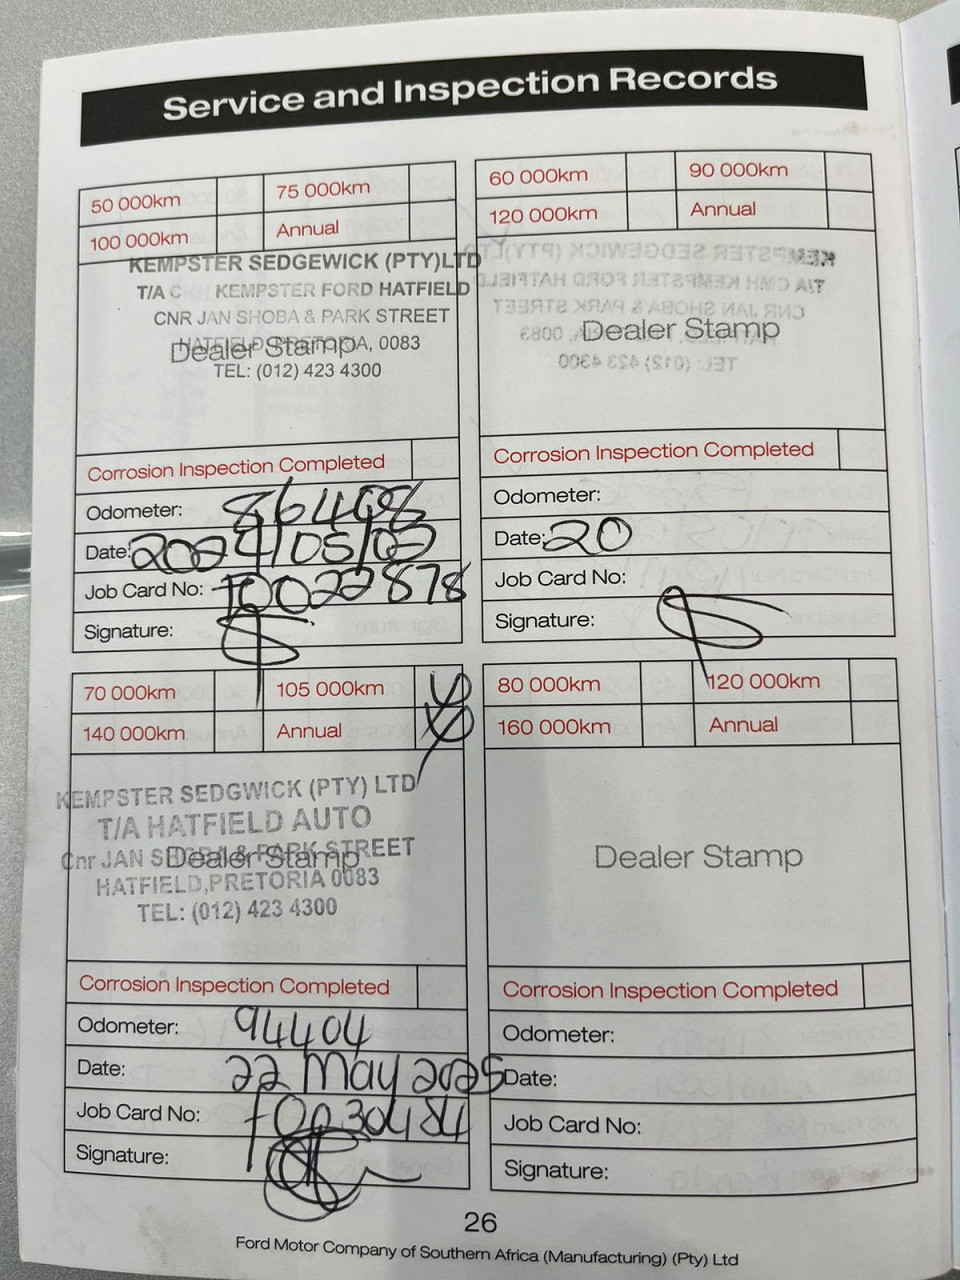 Service and Inspection Records
50 000km 75 000km
100 000km Annual
KEMPSTER SEDGEWICK (PTY)LTD
T/A C KEMPSTER FORD HATFIELD
CNR JAN SHOBA & PARK STREET
HATFIELD PRETORIA, 0083
Dealer Stamp
TEL: (012) 423 4300
Corrosion Inspection Completed
Odometer: 86408
Date: 2024/05/03
Job Card No: F0022878
Signature:
60 000km 90 000km
120 000km Annual
KEMPSTER SEDGEWICK (PTY)LTD
T/A CMH KEMPSTER FORD HATFIELD
CNR JAN SHOBA & PARK STREET
Dealer Stamp
TEL: (012) 423 4300
Corrosion Inspection Completed
Odometer:
Date: 20
Job Card No:
Signature:
70 000km 105 000km
140 000km Annual
KEMPSTER SEDGWICK (PTY) LTD
T/A HATFIELD AUTO
Cnr JAN SHOBA & PARK STREET
Dealer Stamp
HATFIELD,PRETORIA 0083
TEL: (012) 423 4300
Corrosion Inspection Completed
Odometer: 94404
Date: 22 May 2025
Job Card No: F0030484
Signature:
80 000km 120 000km
160 000km Annual
Dealer Stamp
Corrosion Inspection Completed
Odometer:
Date:
Job Card No:
Signature:
26
Ford Motor Company of Southern Africa (Manufacturing) (Pty) Ltd